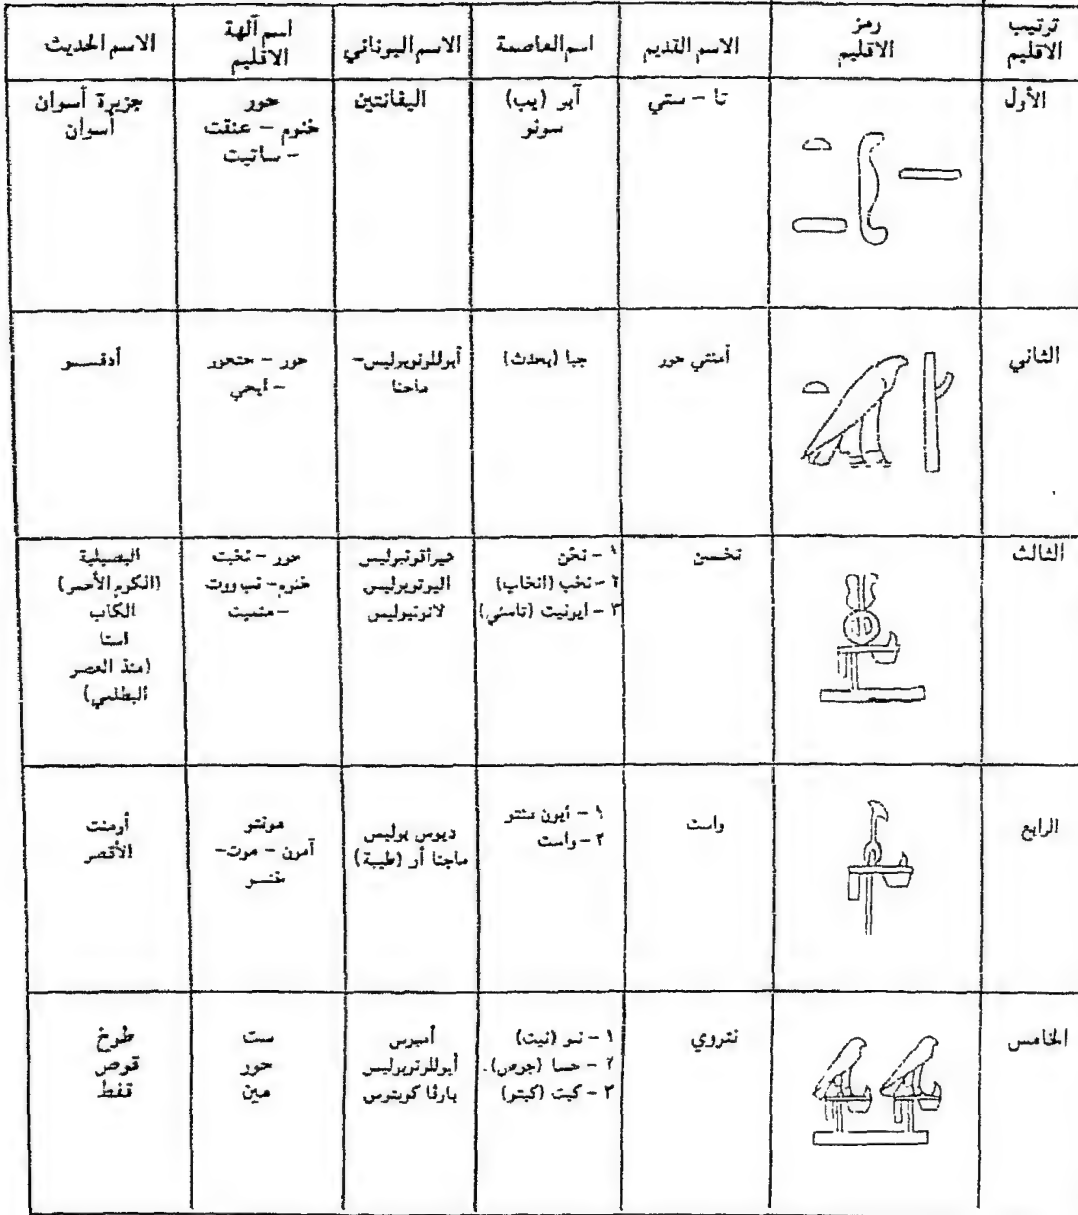 ترتيب الاقليم | رمز الاقليم | الاسم القديم | اسم العاصمة | الاسم اليوناني | اسم آلهة الاقليم | الاسم الحديث
الأول
تا – ستي
آبو (يب)
سونو
اليفانتين
حور
خنوم – عنقت
– ساتيت
جزيرة أسوان
أسوان
الثاني
أمنتي حور
جبا (بحدث)
أبوللونوبوليس–
ماجنا
حور – حتحور
– ايحي
أدفــــو
الثالث
نخــن
١ – نخن
٢ – نخب (انخاب)
٣ – ايونيت (تاسني)
هيراقونبوليس
اليوتوبوليس
لاتوبوليس
حور – نخبت
خنوم – نب ووت
– منحيت
البصيلية
(الكوم الأحمر)
الكاب
اسنا
(منذ العصر
البطلمي)
الرابع
واست
١ – أيون منتو
٢ – واست
ديوس بوليس
ماجنا أو (طيبة)
مونتو
آمون – موت–
خنســو
أرمنت
الأقصر
الخامس
نتروي
١ – نبو (نبت)
٢ – حسا (جوص)
٣ – كبت (كبتو)
أمبوس
أبوللونوبوليس
بارفا كوبتوس
ست
حور
مين
طوخ
قوص
قفط